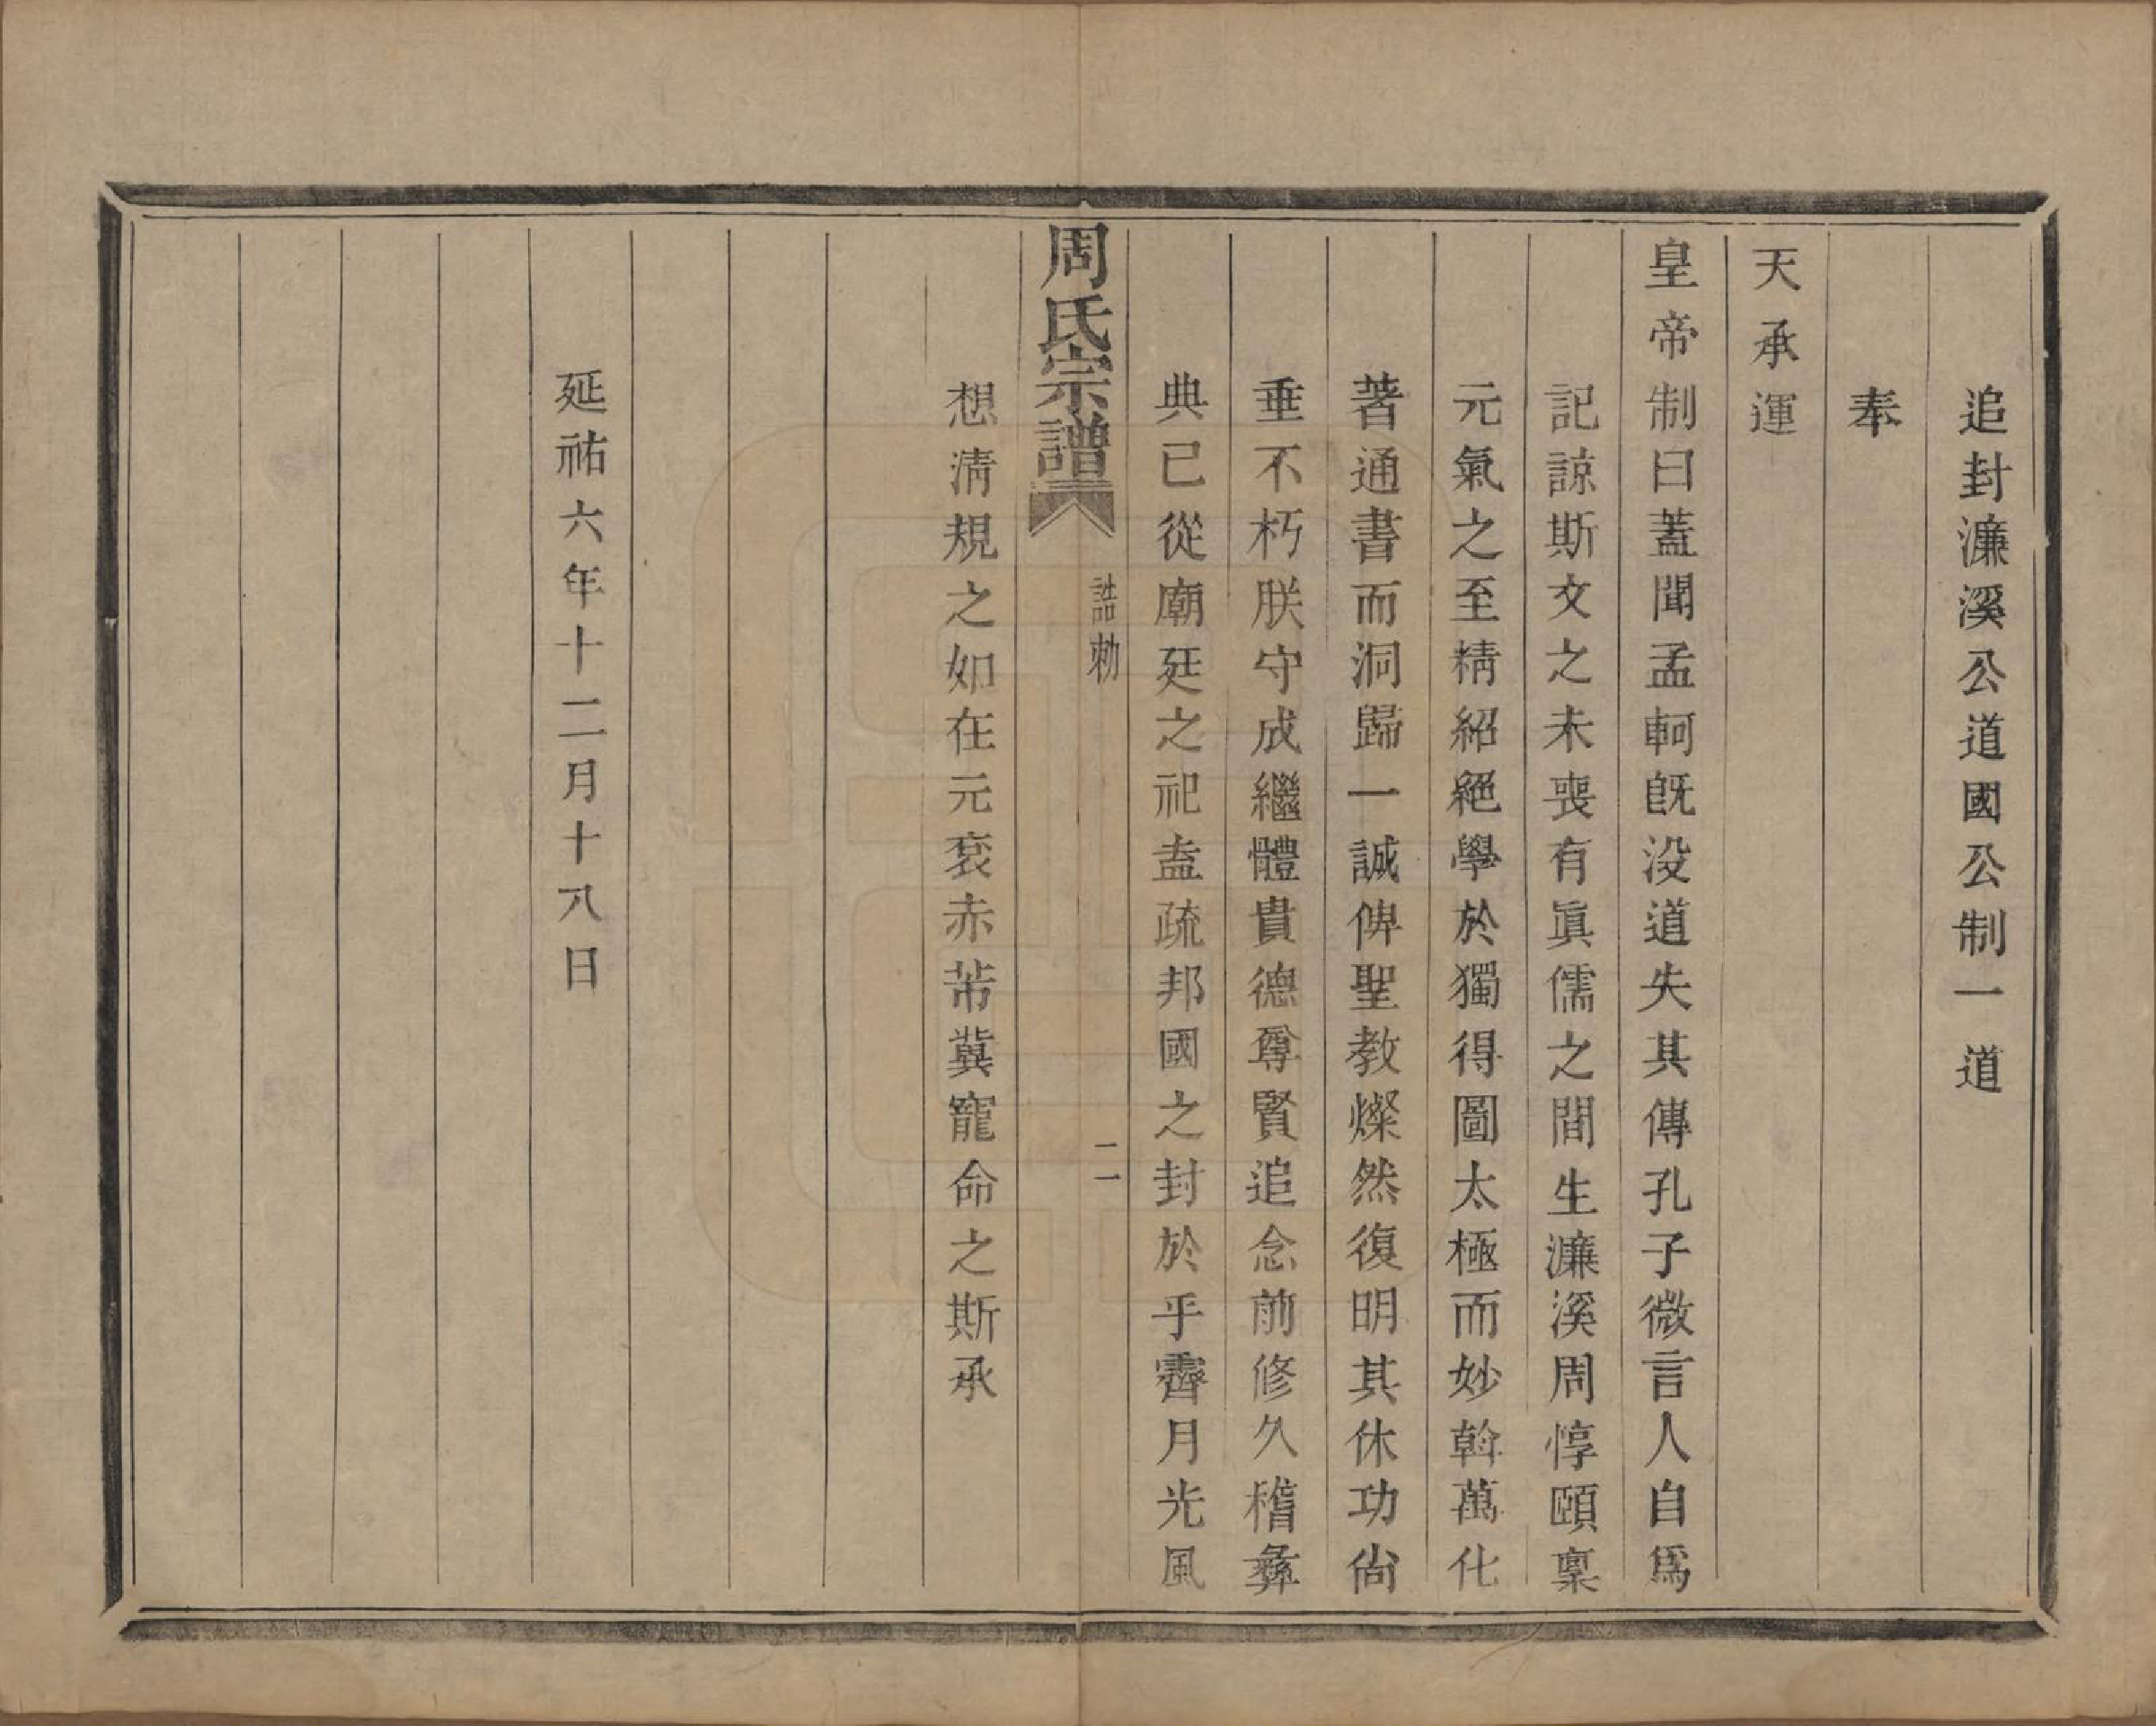 追封濂溪公道國公制一道
奉
天承運
皇帝制曰蓋聞孟軻旣没道失其傳孔子微言人自爲
記諒斯文之未喪有眞儒之間生濂溪周惇頤稟
元氣之至精紹絕學於獨得圖太極而妙斡萬化
著通書而洞歸一誠俾聖教燦然復明其休功尙
垂不朽朕守成繼體貴德尊賢追念前修久稽彝
典已從廟廷之祀盍疏邦國之封於乎霽月光風
周氏宗譜 誥勅 二一
想淸規之如在元袞赤芾冀寵命之斯承
延祐六年十二月十八日